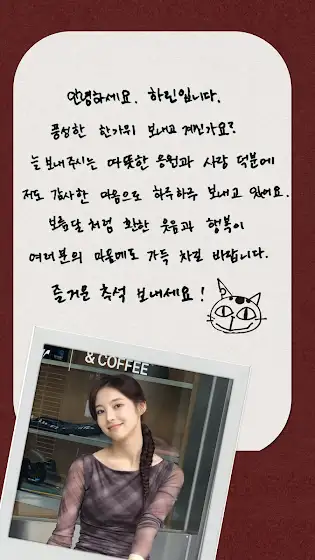 안녕하세요. 하린입니다.
풍성한 한가위 보내고 계신가요?
늘 보내주시는 따뜻한 응원과 사랑 덕분에
저도 감사한 마음으로 하루하루 보내고 있어요.
보름달처럼 환한 웃음과 행복이
여러분의 마음에도 가득 차길 바랍니다.
즐거운 추석 보내세요!
& COFFEE